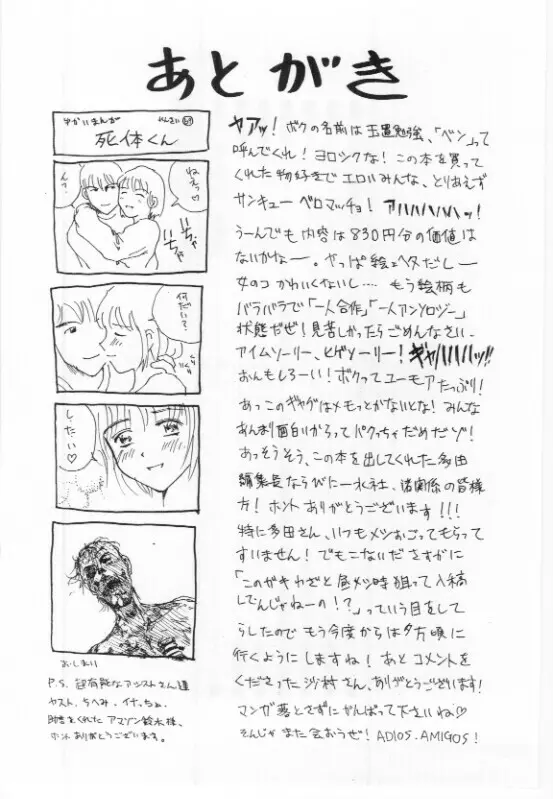 あとがき
ヤアッ！ボクの名前は玉置勉強、「ベン」って
呼んでくれ！ヨロシクな！この本を買って
くれた物好きでエロいみんな、とりあえず
サンキューベロマッチョ！アハハハハハッ！
うーんでも内容は830円分の価値は
ないかなー。やっぱ絵ェヘタだしー
女のコかわいくないし‥‥もう絵柄も
バラバラで「一人合作」「一人アンソロジー」
状態だぜ！見苦しかったらごめんなさい。
アイムソーリー、ヒゲソーリー！ギャハハハハッ!!
おんもしろーい！ボクってユーモアたっぷり！
あっこのギャグはメモっとかないとな！みんな
あんまり面白いからってパクっちゃだめだゾ！
あっそうそう、この本を出してくれた多田
編集長ならびに一水社、諸関係の皆様
方！ホントありがとうございます！！！
特に多田さん、いつもメシおごってもらって
すいません！でもこないださすがに
「このガキわざと昼メシ時狙って入稿
してんじゃねーの！？」っていう目をして
らしたのでもう今度からは夕方頃に
行くようにしますね！あとコメントを
くださった沙村さん、ありがとうございます！
マンガ落とさずにがんばって下さいね♡
そんじゃまた会おうぜ！ADIOS.AMIGOS！
死体くん
ねぇ♡
ん？
いちゃ
いちゃ
何だい？
したい♡
おしまい
P.S. 超有能なアシストさん達
ヤスト、ちへみ、イナっちょ、
助言をくれたアマゾン鈴木様、
ホントありがとうございます。